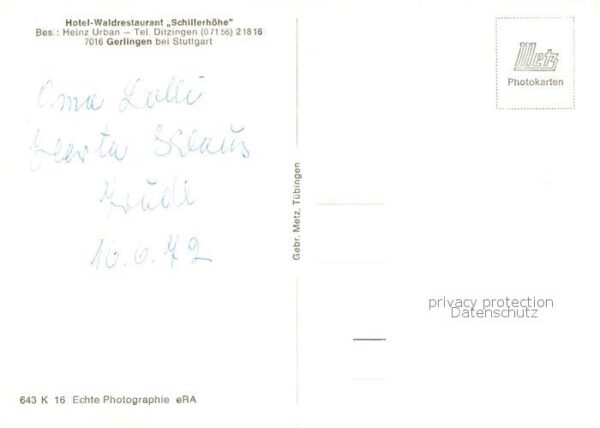 Hotel-Waldrestaurant „Schillerhöhe"
Bes.: Heinz Urban — Tel. Ditzingen (07156) 21816
7016 Gerlingen bei Stuttgart
Oma Lulli
Herta Klaus
Trudi
16.6.72
Gebr. Metz, Tübingen
Metz
Photokarten
privacy protection
Datenschutz
643 K 16 Echte Photographie eRA